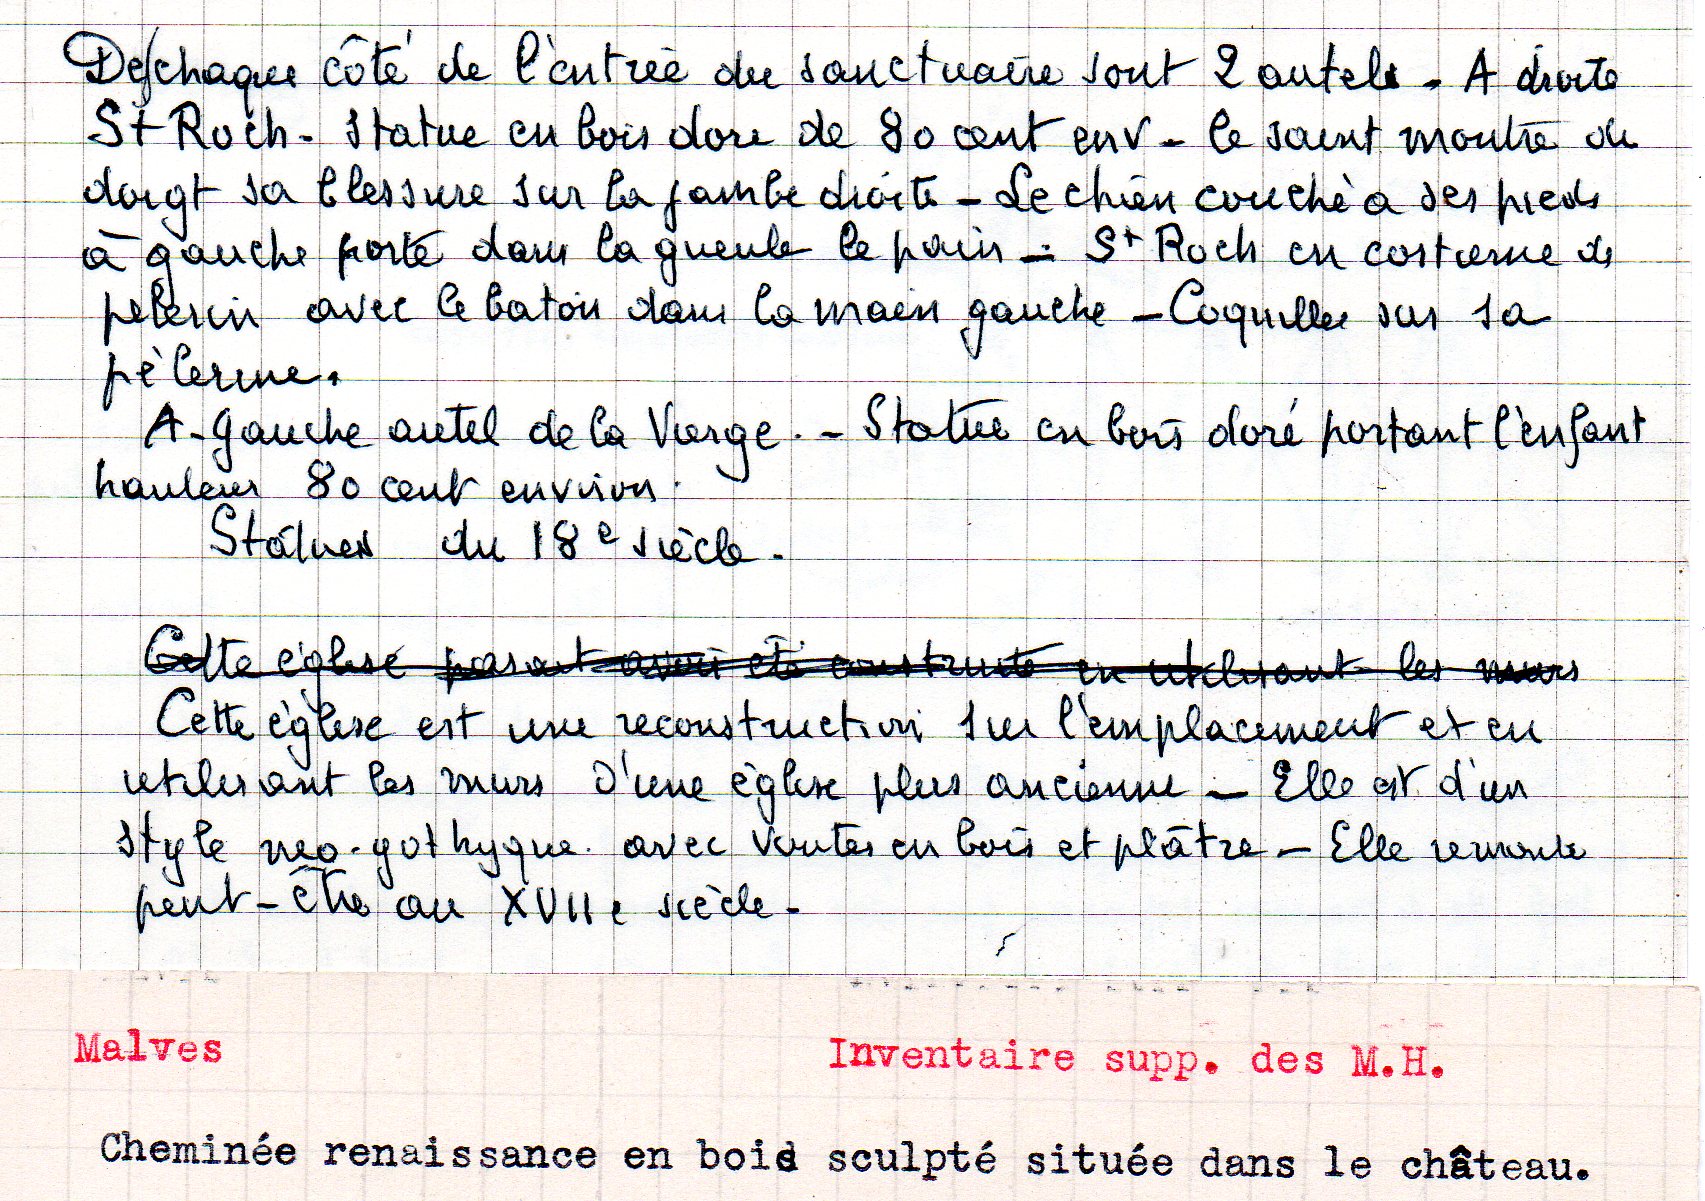 De chaque côté de l'entrée du sanctuaire sont 2 autels - A droite
St Roch - Statue en bois dore de 80 cent env - le saint montre du
doigt sa blessure sur la jambe droite - Le chien couché a ses pieds
à gauche porte dans la gueule le pain - St Roch en costume de
pelerin avec le baton dans la main gauche - Coquilles sur sa
pèlerine.
A gauche autel de la Vierge. - Statue en bois doré portant l'enfant
hauteur 80 cent environ.
Statues du 18e siècle.
Cette église parait avoir été construite en utilisant les murs
Cette église est une reconstruction sur l'emplacement et en
utilisant les murs d'une église plus ancienne - Elle est d'un
style neo-gothyque. avec voutes en bois et plâtre - Elle remonte
peut-être au XVIIe siècle -
Malves
Inventaire supp. des M.H.
Cheminée renaissance en bois sculpté située dans le château.